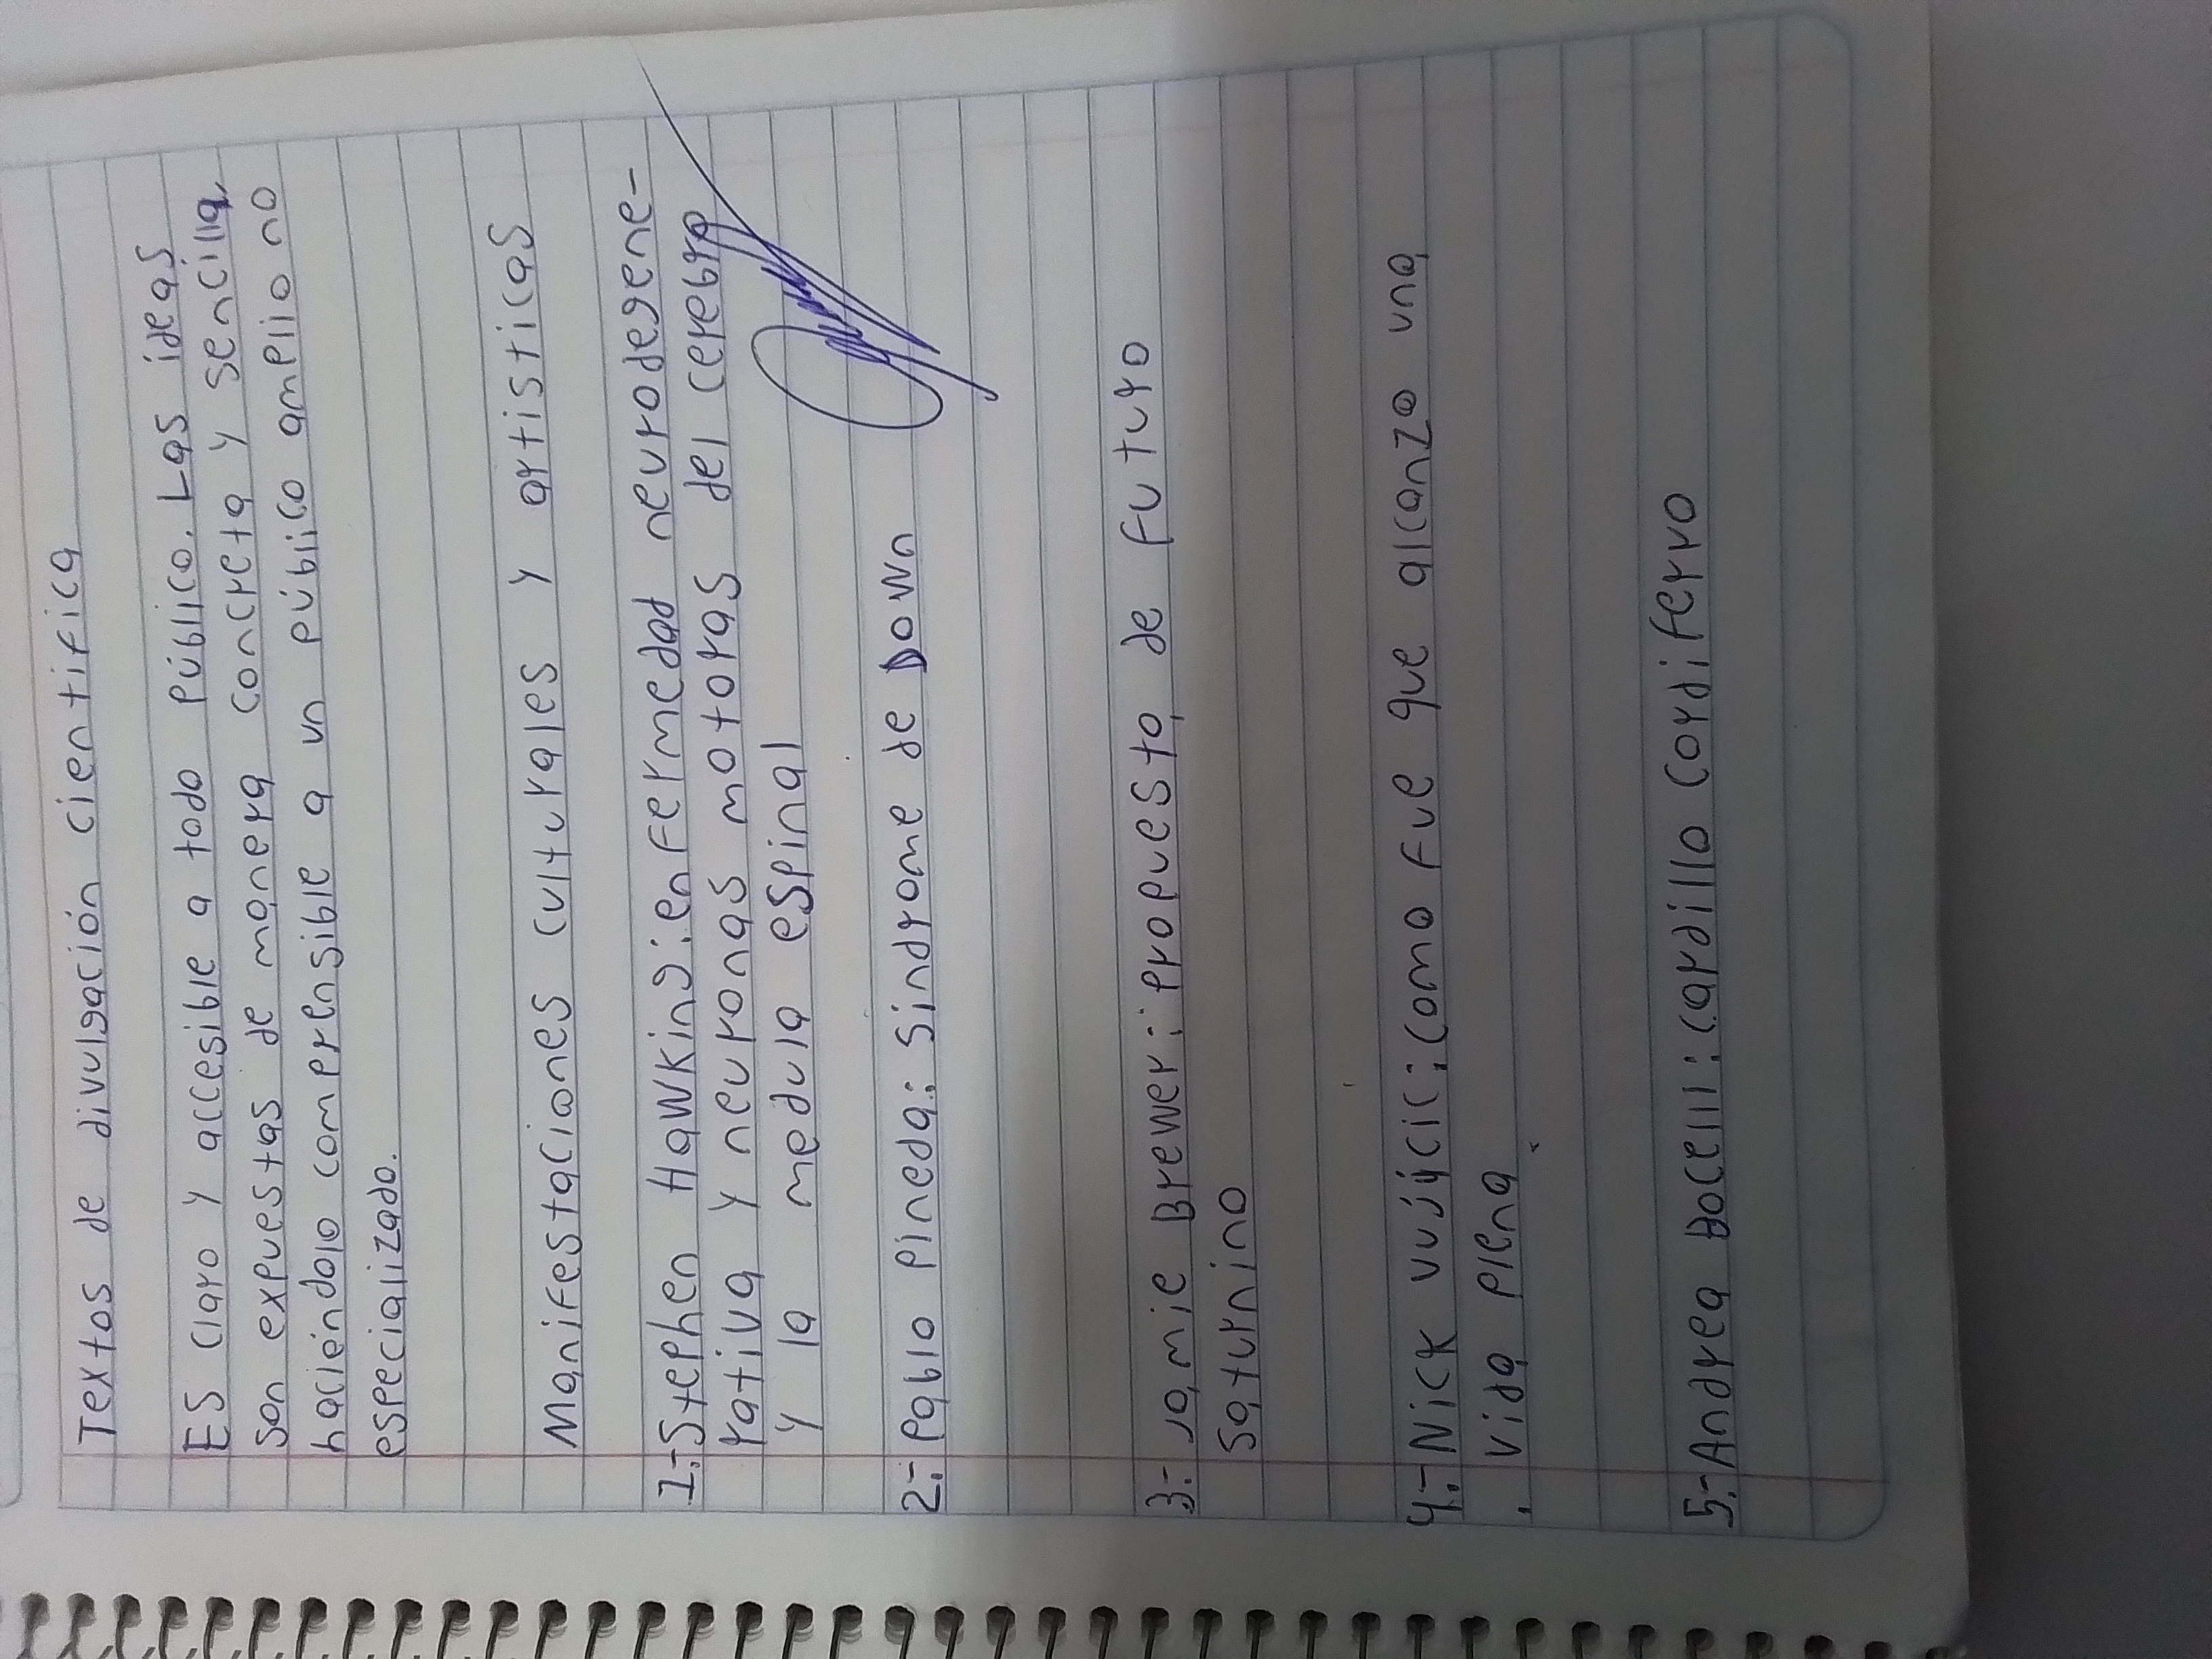 Textos de divulgación cientifica
Es claro y accesible a todo público. Las ideas
son expuestas de manera concreta y sencilla,
haciéndolo comprensible a un público amplio no
especializado.
Manifestaciones culturales y artisticas
1.-Stephen Hawking: enfermedad neurodegene-
rativa y neuronas motoras del cerebro
y la medula espinal
2.- Pablo Pineda: Sindrome de Down
3.- Jamie Brewer: propuesta de futuro
saturnino
4.-Nick vujicic: como fue que alcanzo una
vida plena
5.-Andrea Bocelli: cardillo cordiferro